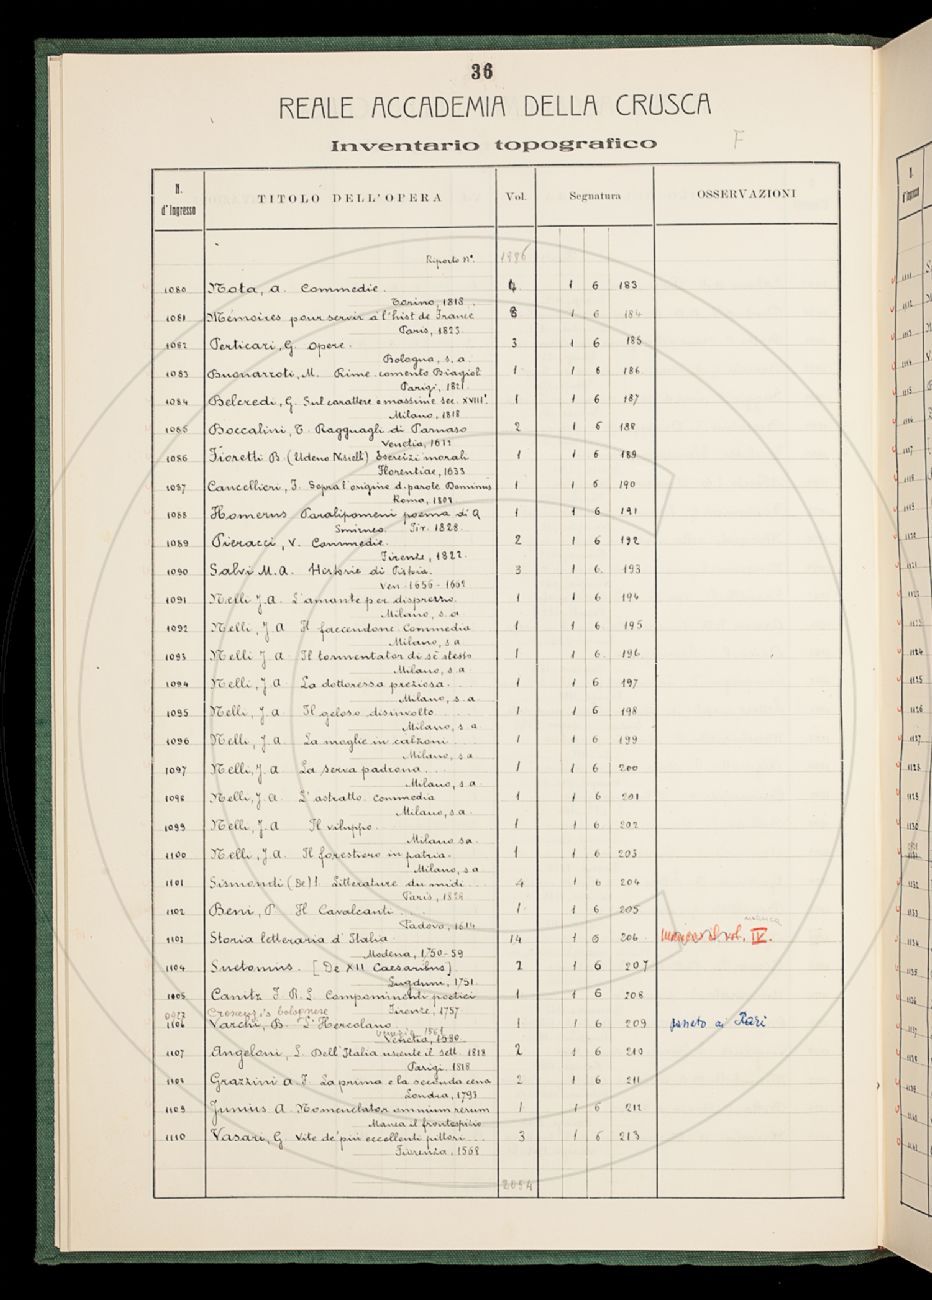 36
REALE ACCADEMIA DELLA CRUSCA
Inventario topografico F
N. d'Ingresso TITOLO DELL'OPERA Vol. Segnatura OSSERVAZIONI
Riporto N°. 1996
1080 Nota, A. Commedie. 4 1 6 183
Torino, 1818.
1081 Mémoires pour servir à l'hist de France 8 1 6 184
Paris, 1823.
1082 Perticari, G. Opere. 3 1 6 185
Bologna, s. a.
1083 Buonarroti, M. Rime comento Biagioli 1 1 6 186
Parigi, 1821.
1084 Belcredi, G. Sul carattere e massime sec. XVIII°. 1 1 6 187
Milano, 1818
1085 Boccalini, T. Ragguagli di Parnaso 2 1 6 188
Venetia, 1612
1086 Fioretti B. (Udeno Nisielli) Esercizi morali 1 1 6 189
Florentiae, 1633
1087 Cancellieri, F. Sopra l'origine d. parole Dominus 1 1 6 190
Roma, 1808
1088 Homerus Paralipomeni poema di Q 1 1 6 191
Smirneo. Fir. 1828.
1089 Pieracci, V. Commedie. 2 1 6 192
Firenze, 1822.
1090 Salvi M. A. Historie di Pistoia. 3 1 6 193
Ven. 1656-1662
1091 Nelli J. A. L'amante per disprezzo. 1 1 6 194
Milano, s. a
1092 Nelli, J. A Il faccendone Commedia 1 1 6 195
Milano, s. a
1093 Nelli J. A. Il tormentator di sè stesso 1 1 6 196
Milano, s. a
1094 Nelli, J. A La dottoressa preziosa. 1 1 6 197
Milano, s. a
1095 Nelli, J. A. Il geloso disinvolto 1 1 6 198
Milano, s. a
1096 Nelli, J. A. La moglie in calzoni 1 1 6 199
Milano, s. a
1097 Nelli, J. A La serva padrona. 1 1 6 200
Milano, s. a.
1098 Nelli, J. A. L'astratto. Commedia 1 1 6 201
Milano, s. a.
1099 Nelli, J. A Il viluppo. 1 1 6 202
Milano sa.
1100 Nelli, J. A. Il forestiero in patria. 1 1 6 203
Milano, s. a
1101 Sismondi (De) S. Littérature du midi 4 1 6 204
Paris,
1102 Beni, P. Il Cavalcanti. 1 1 6 205
Padova, 1614
1103 Storia letteraria d'Italia. 14 1 6 206 manca il vol. IV.
Modena, 1750-59
1104 Suetonius. [De XII Caesaribus] 2 1 6 207
Lugduni, 1751.
1105 Canitz F. R. L. Componimenti poetici 1 1 6 208
Firenze, 1757
1106 Varchi, B. L'Hercolano 1 1 6 209 passato ai Rari
Venetia, 1580
1107 Angeloni, L. Dell'Italia uscente il sett. 1818 2 1 6 210
Parigi. 1818
1108 Grazzini A. F. La prima e la seconda cena 2 1 6 211
Londra, 1793
1109 Junius A. Nomenclator omnium rerum 1 1 6 212
Manca il frontespizio
1110 Vasari, G Vite de' più eccellenti pittori 3 1 6 213
Fiorenza, 1568
2054